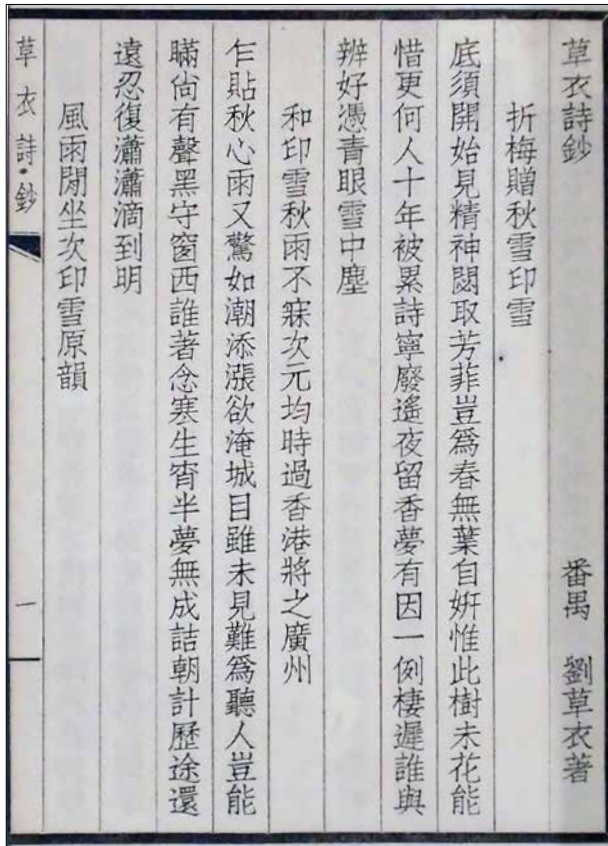 草衣詩鈔 番禺 劉草衣著
折梅贈秋雪印雪
底須開始見精神閟取芳菲豈爲春無葉自妍惟此樹未花能
惜更何人十年被累詩寧廢遙夜留香夢有因一例棲遲誰與
辨好憑青眼雪中塵
和印雪秋雨不寐次元均時過香港將之廣州
乍貼秋心雨又驚如潮添漲欲淹城目雖未見難爲聽人豈能
瞞尙有聲黑守窗西誰著念寒生宵半夢無成詰朝計歷途還
遠忍復瀟瀟滴到明
風雨閒坐次印雪原韻
草衣詩·鈔 一